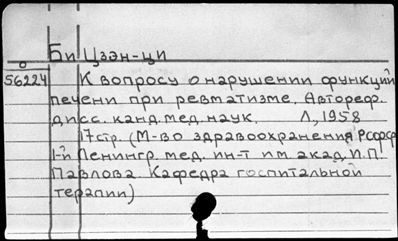 Би Цзэн-ци
56224 К вопросу о нарушении функций
печени при ревматизме. Автореф.
дисс. канд. мед. наук. Л, 1958
17 стр. (М-во здравоохранения РСФСР
1-й Ленингр. мед. ин-т им. акад. И. П.
Павлова Кафедра госпитальной
терапии)